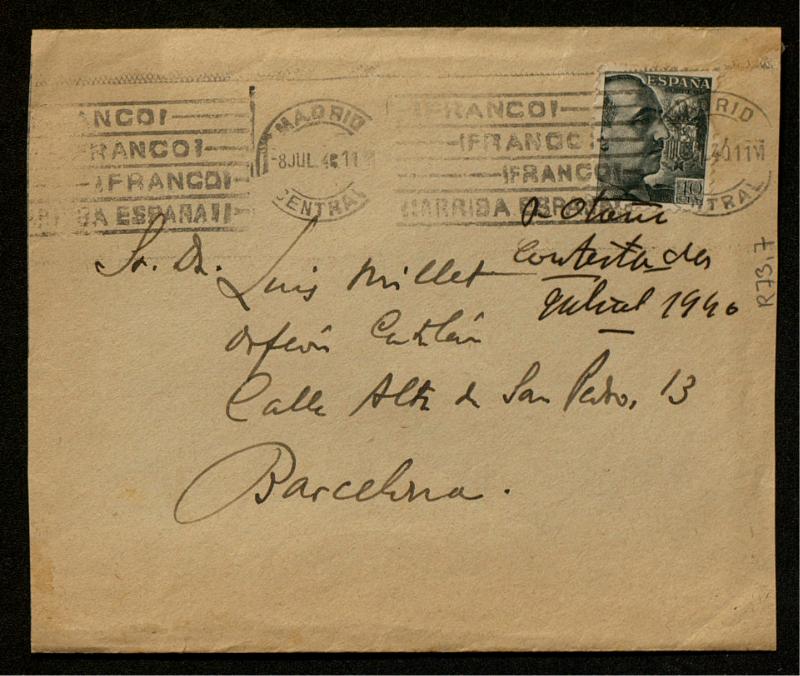 ¡FRANCO!
¡FRANCO!
¡FRANCO!
¡ARRIBA ESPAÑA!!
MADRID
-8JUL.40.11M
CENTRAL
¡FRANCO!
¡FRANCO!
¡FRANCO!
¡ARRIBA ESPAÑA
ESPAÑA
40
MADRID
40.11M
CENTRAL
P. Otaño
Contestada
Juliol 1940
Sr. Dn. Luis Millet
Orfeón Catalán
Calle Alta de San Pedro, 13
Barcelona.
R73,7